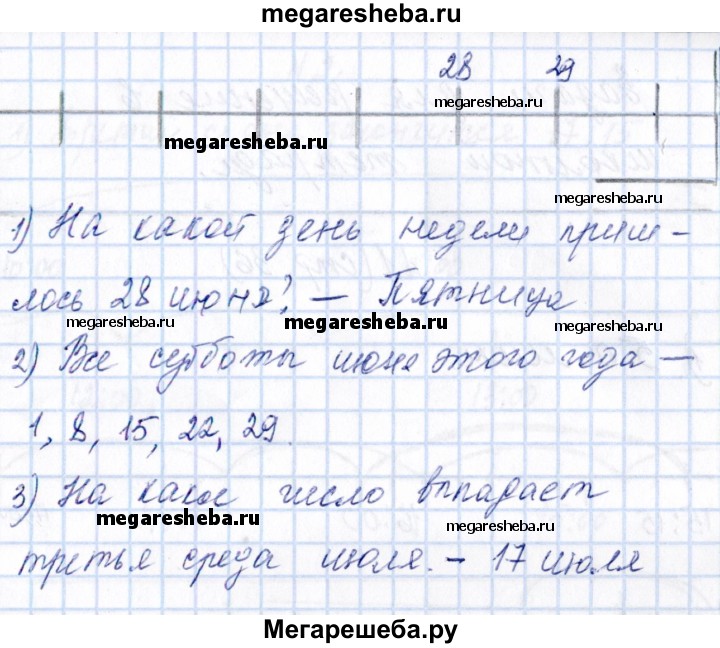 megaresheba.ru
28 29
megaresheba.ru
megaresheba.ru
1) На какой день недели приш-
megaresheba.ru
лось 28 июня? – Пятница
megaresheba.ru megaresheba.ru megaresheba.ru
2) Все субботы июня этого года –
1, 8, 15, 22, 29.
3) На какое число выпадает
megaresheba.ru megaresheba.ru
третья среда июля. – 17 июля
Мегарешеба.ру